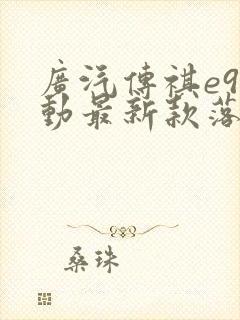 廣汽傳祺e9
動最新款落
桑珠